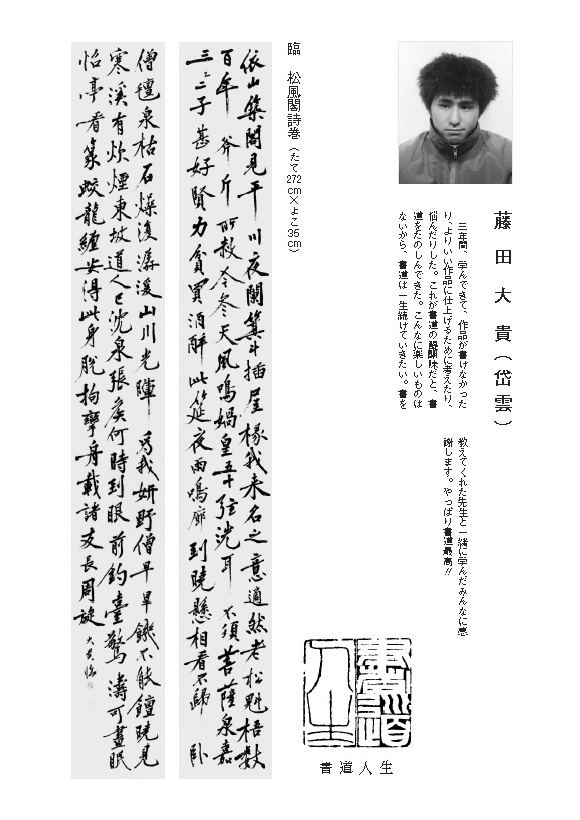 藤田大貴(岱雲)
三年間、学んできて、作品が書けなかった
り、よりいい作品に仕上げるために考えたり、
悩んだりした。これが書道の醍醐味だと、書
道をたのしんできた。こんなに楽しいものは
ないから、書道は一生続けていきたい。書を
教えてくれた先生と一緒に学んだみんなに感
謝します。やっぱり書道最高!!
書道人生
書道人生
臨 松風閣詩巻(たて272cm×よこ35cm)
依山築閣見平川夜闌箕斗插屋椽我来名之意適然老松魁梧數
百年斧斤所赦今參天風鳴媧皇五十弦洗耳不須菩薩泉嘉
三二子甚好賢力貧買酒醉此筵夜雨鳴廊到曉懸相看不歸臥
僧氈泉枯石燥復潺湲山川光輝為我妍野僧早旱餓不能饘曉見
寒溪有炊煙東坡道人已沈泉張矦何時到眼前釣臺驚濤可晝眠
怡亭看篆蛟龍纏安得此身脫拘攣舟載諸友長周旋
大貴臨